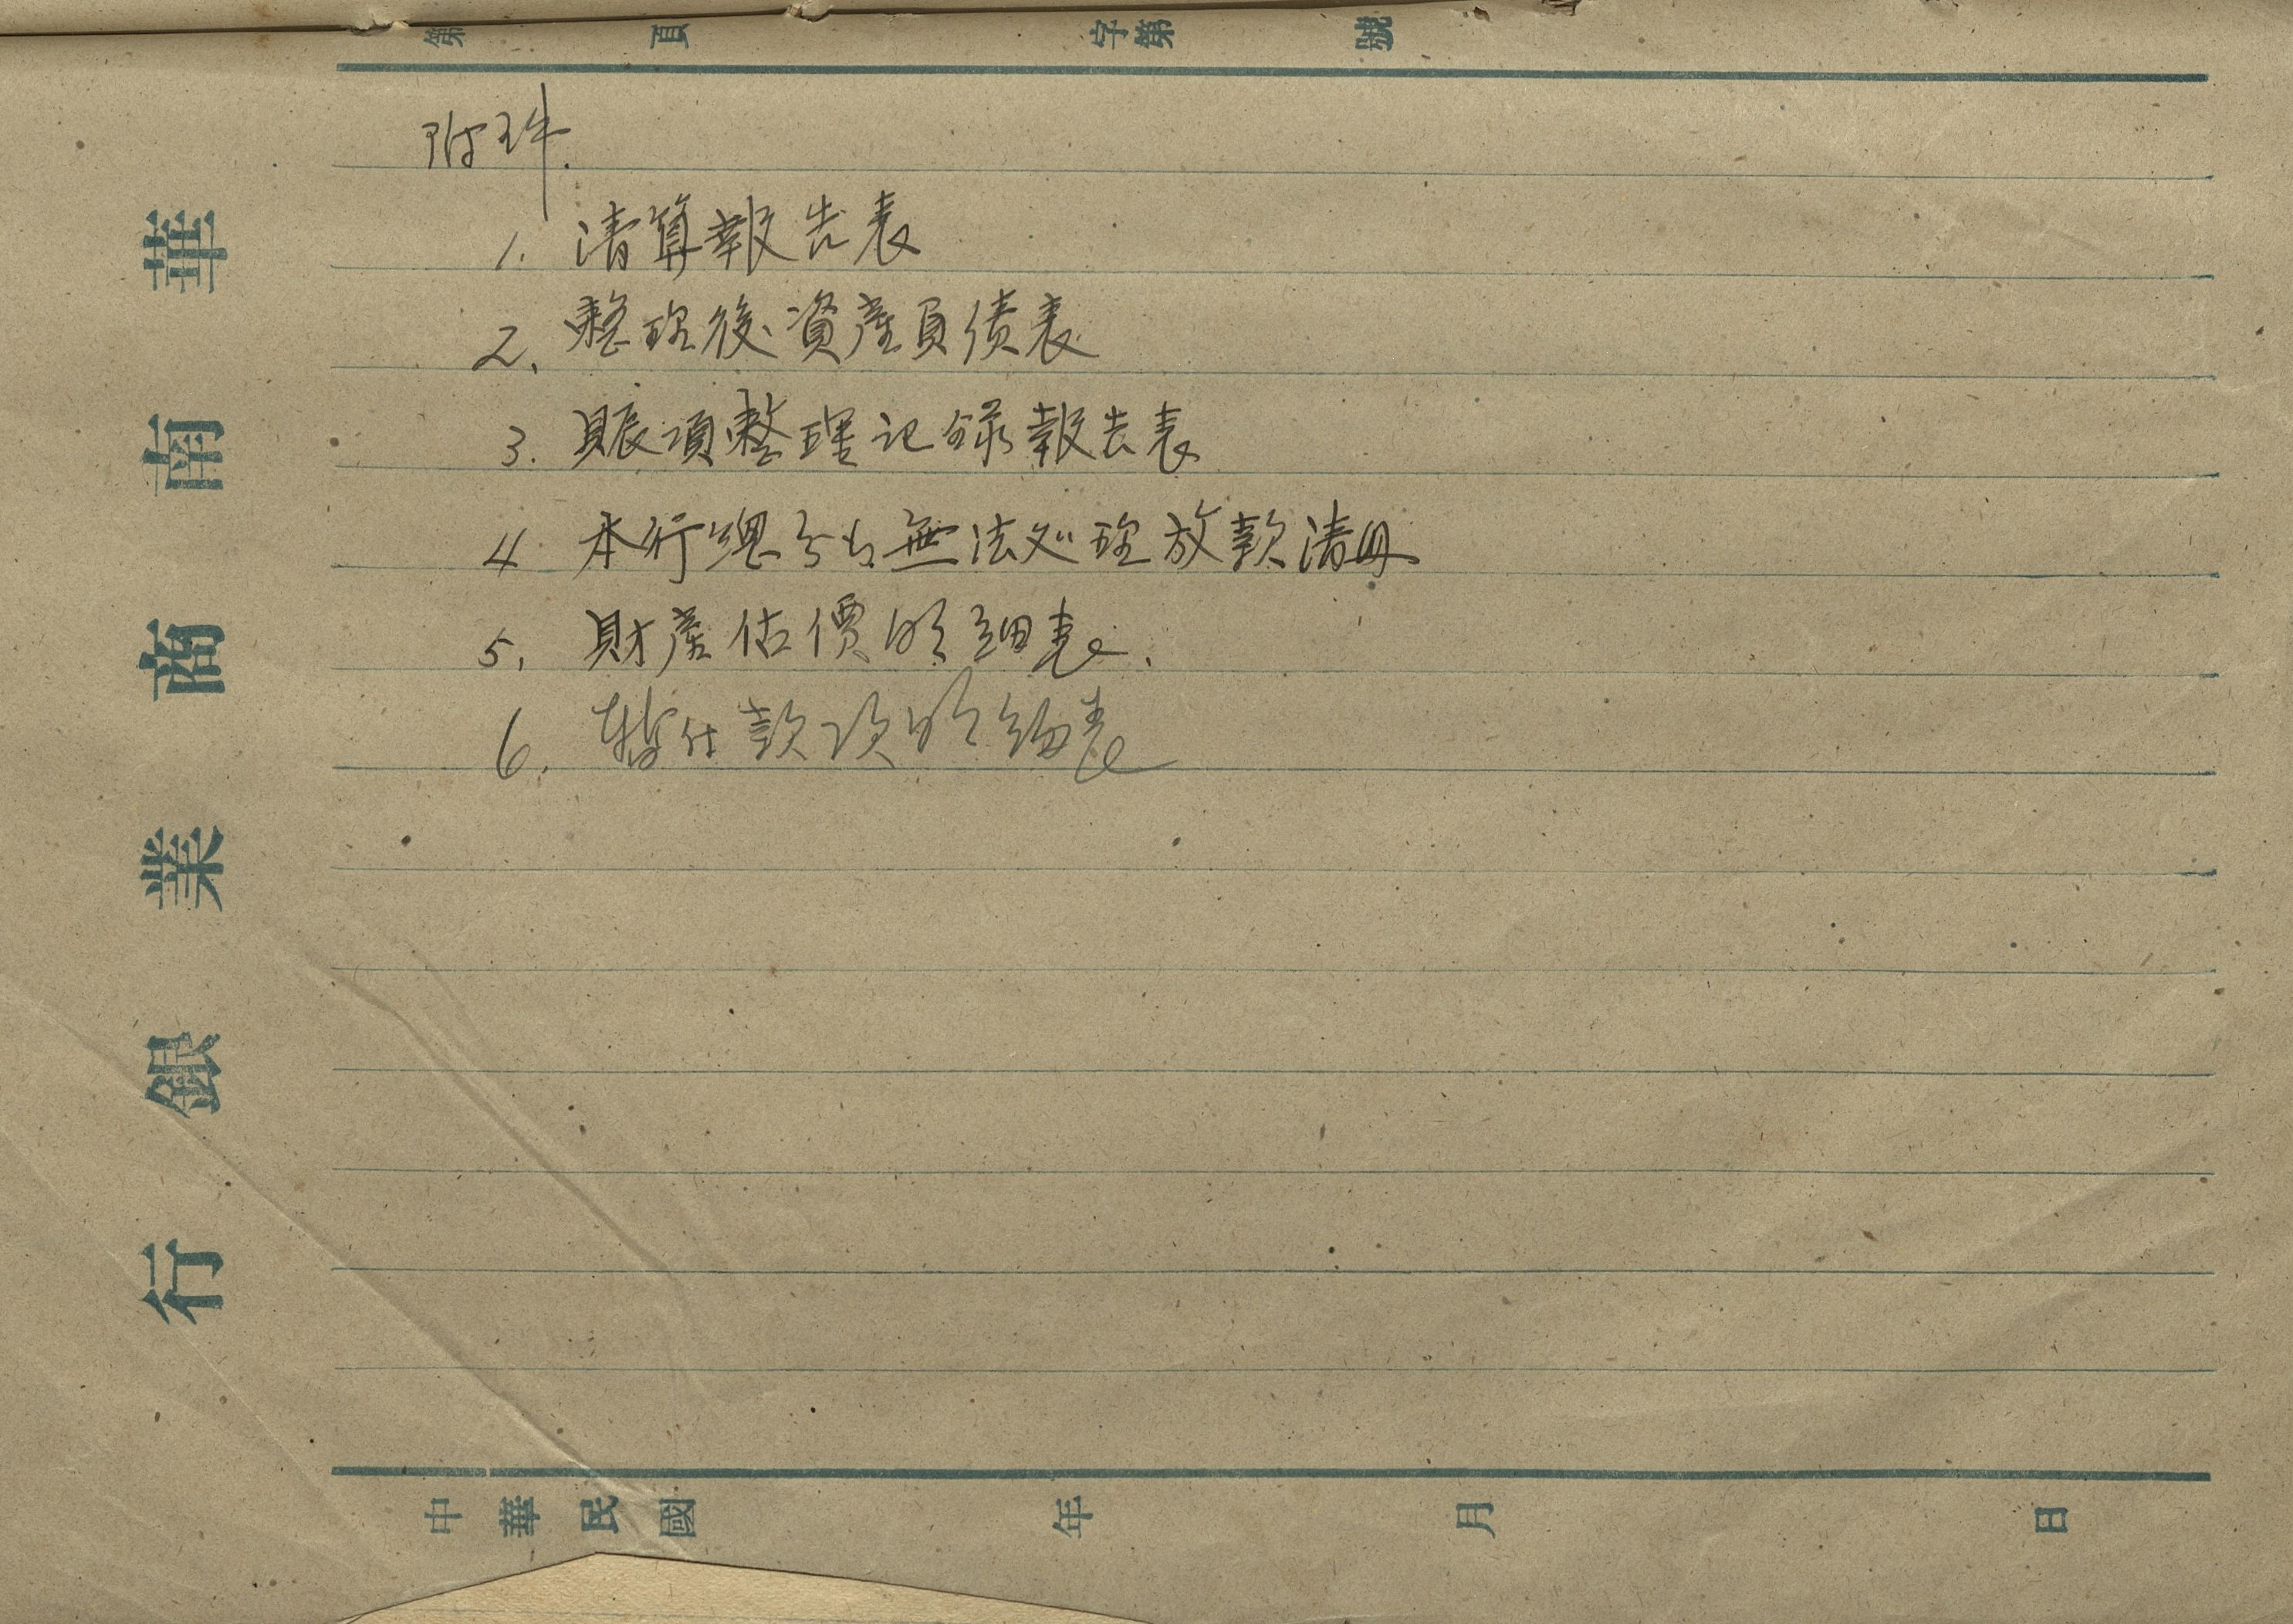 第 頁 字第 號
附件.
1. 清算報告表
2. 整理後資產負債表
3. 賬項整理記錄報告表
4 本行總分支無法处理放款清册
5. 財產估價明細表.
6. 暫付款項明細表
華南商業銀行
中華民國 年 月 日